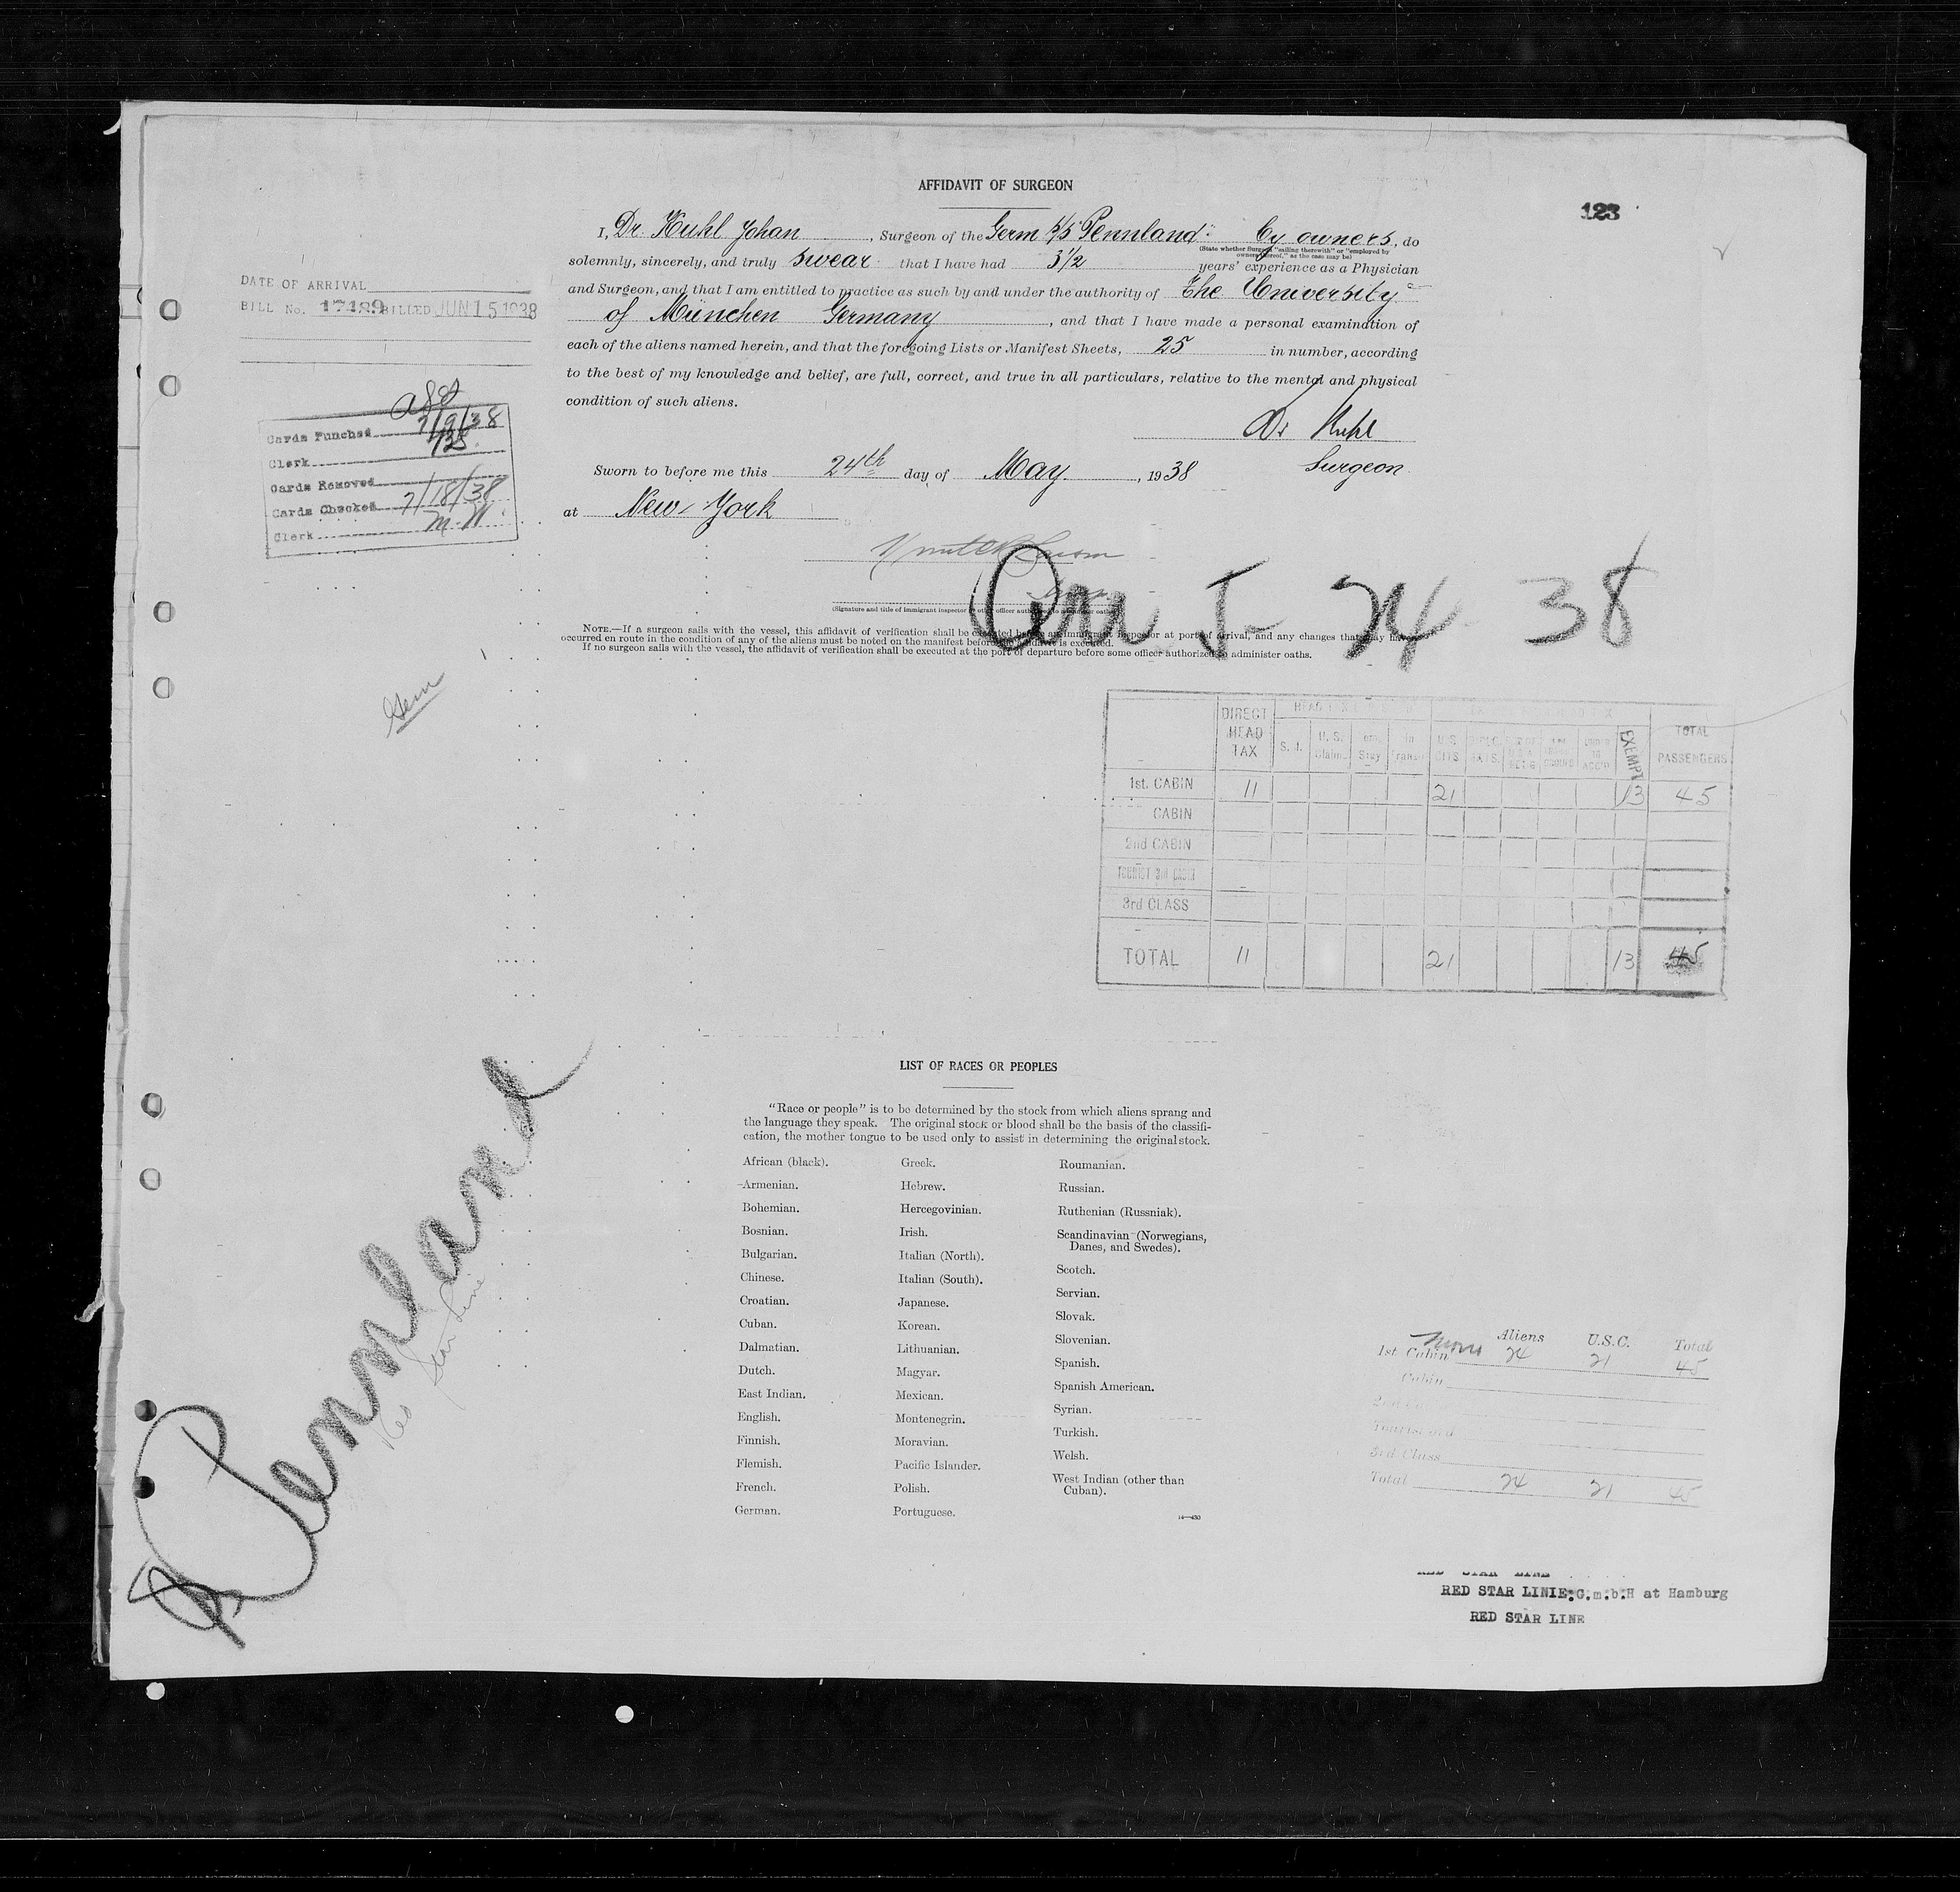 AFFIDAVIT OF SURGEON
123
I, Dr. Kuhl Johan, Surgeon of the Germ S/S Pennland: by owners, do
(State whether Surgeon "sailing therewith" or "employed by
owners thereof," as the case may be)
solemnly, sincerely, and truly swear that I have had 3 1/2 years' experience as a Physician
and Surgeon, and that I am entitled to practice as such by and under the authority of The University
of München Germany, and that I have made a personal examination of
each of the aliens named herein, and that the foregoing Lists or Manifest Sheets, 25 in number, according
to the best of my knowledge and belief, are full, correct, and true in all particulars, relative to the mental and physical
condition of such aliens.
Dr Kuhl
Surgeon
Sworn to before me this 24th day of May, 1938
at New York
(Signature and title of immigrant inspector or other officer authorized to administer oaths)
NOTE.—If a surgeon sails with the vessel, this affidavit of verification shall be executed before an immigrant inspector at port of arrival, and any changes that may have
occurred en route in the condition of any of the aliens must be noted on the manifest before the affidavit is executed.
If no surgeon sails with the vessel, the affidavit of verification shall be executed at the port of departure before some officer authorized to administer oaths.
Arr 5-24 38
DATE OF ARRIVAL
BILL No. 17189 BILLED JUN 15 1938
Cards Punched 7/9/38
Clerk
Cards Removed
Cards Checked 7/18/38
Clerk M. W.
Germ
DIRECT HEAD TAX
S. I.
U. S. Claim
Tem. Stay
In Transit
U.S. CITS
EXEMPT
TOTAL PASSENGERS
1st. CABIN 11 21 13 45
CABIN
2nd CABIN
TOURIST 3rd CABIN
3rd CLASS
TOTAL 11 21 13 45
LIST OF RACES OR PEOPLES
"Race or people" is to be determined by the stock from which aliens sprang and
the language they speak. The original stock or blood shall be the basis of the classifi-
cation, the mother tongue to be used only to assist in determining the original stock.
African (black).
Armenian.
Bohemian.
Bosnian.
Bulgarian.
Chinese.
Croatian.
Cuban.
Dalmatian.
Dutch.
East Indian.
English.
Finnish.
Flemish.
French.
German.
Greek.
Hebrew.
Hercegovinian.
Irish.
Italian (North).
Italian (South).
Japanese.
Korean.
Lithuanian.
Magyar.
Mexican.
Montenegrin.
Moravian.
Pacific Islander.
Polish.
Portuguese.
Roumanian.
Russian.
Ruthenian (Russniak).
Scandinavian (Norwegians,
Danes, and Swedes).
Scotch.
Servian.
Slovak.
Slovenian.
Spanish.
Spanish American.
Syrian.
Turkish.
Welsh.
West Indian (other than
Cuban).
14—430
Pennland
Red Star Line
Aliens U.S.C. Total
1st Cabin 24 21 45
Cabin
2nd
Tourist 3rd
3rd Class
Total 24 21 45
RED STAR LINE
RED STAR LINIE G.m.b.H at Hamburg
RED STAR LINE